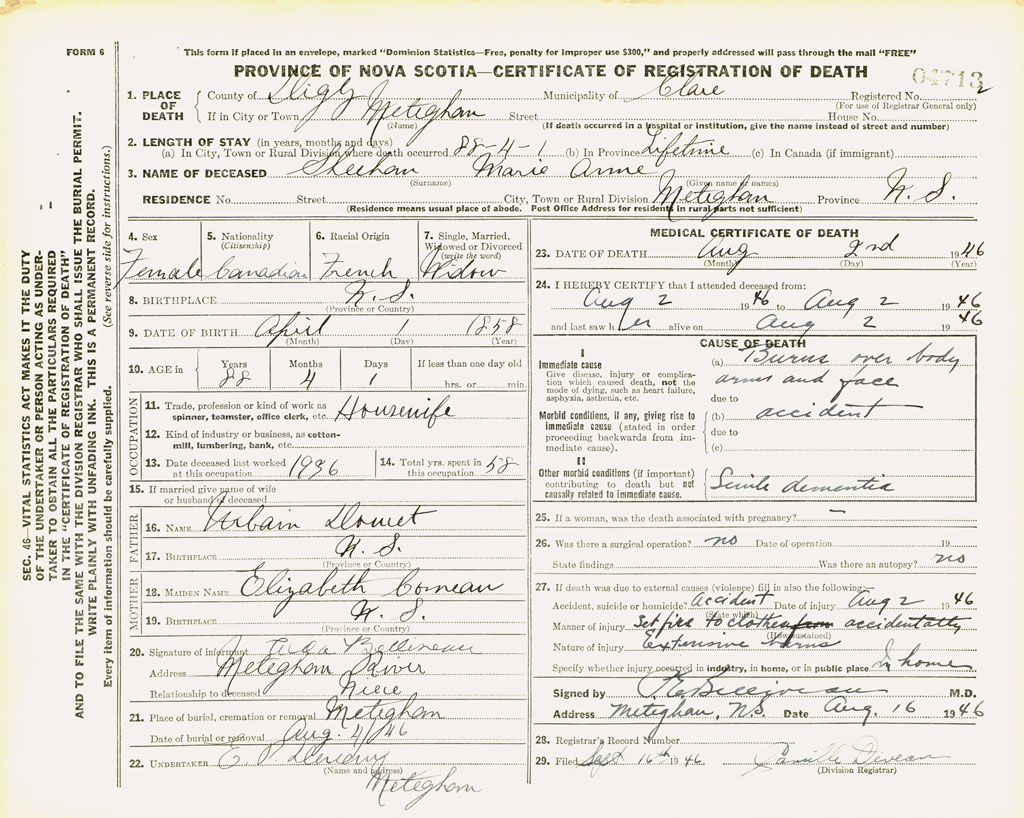 FORM 6
This form if placed in an envelope, marked "Dominion Statistics—Free, penalty for improper use $300," and properly addressed will pass through the mail "FREE"
PROVINCE OF NOVA SCOTIA—CERTIFICATE OF REGISTRATION OF DEATH
04713
1. PLACE OF DEATH County of Digby Municipality of Clare Registered No. 2
(For use of Registrar General only)
If in City or Town Meteghan Street House No.
(Name) (If death occurred in a hospital or institution, give the name instead of street and number)
2. LENGTH OF STAY (in years, months and days)
(a) In City, Town or Rural Division where death occurred 88-4-1 (b) In Province Lifetime (c) In Canada (if immigrant)
3. NAME OF DECEASED Sheehan Marie Anne
(Surname) (Given name or names)
RESIDENCE No. Street City, Town or Rural Division Meteghan Province N. S.
(Residence means usual place of abode. Post Office Address for residents in rural parts not sufficient)
4. Sex 5. Nationality (Citizenship) 6. Racial Origin 7. Single, Married, Widowed or Divorced (write the word)
Female Canadian French Widow
8. BIRTHPLACE N. S.
(Province or Country)
9. DATE OF BIRTH April 1 1858
(Month) (Day) (Year)
10. AGE in Years Months Days If less than one day old
88 4 1 hrs. or min.
OCCUPATION
11. Trade, profession or kind of work as spinner, teamster, office clerk, etc. Housewife
12. Kind of industry or business, as cotton-mill, lumbering, bank, etc.
13. Date deceased last worked at this occupation 1936 14. Total yrs. spent in this occupation 58
15. If married give name of wife or husband of deceased
FATHER
16. NAME Urbain Doucet
17. BIRTHPLACE N. S.
(Province or Country)
MOTHER
18. MAIDEN NAME Elizabeth Comeau
19. BIRTHPLACE N. S.
(Province or Country)
20. Signature of informant
Address Meteghan River
Relationship to deceased Niece
21. Place of burial, cremation or removal Meteghan
Date of burial or removal Aug. 4/46
22. UNDERTAKER
(Name and address)
Meteghan
MEDICAL CERTIFICATE OF DEATH
23. DATE OF DEATH Aug 2nd 1946
(Month) (Day) (Year)
24. I HEREBY CERTIFY that I attended deceased from:
Aug 2 1946 to Aug 2 1946
and last saw her alive on Aug 2 1946
CAUSE OF DEATH
I
Immediate cause (a) Burns over body
Give disease, injury or complication which caused death, not the mode of dying, such as heart failure, asphyxia, asthenia, etc. arms and face
due to
Morbid conditions, if any, giving rise to immediate cause (stated in order proceeding backwards from immediate cause). (b) accident
due to
(c)
II
Other morbid conditions (if important) contributing to death but not causally related to immediate cause. Senile dementia
25. If a woman, was the death associated with pregnancy? –
26. Was there a surgical operation? no Date of operation 19
State findings Was there an autopsy? no
27. If death was due to external causes (violence) fill in also the following:
Accident, suicide or homicide? accident Date of injury Aug 2 1946
(State which)
Manner of injury Set fire to clothes accidentally
(How sustained)
Nature of injury Extensive burns
Specify whether injury occurred in industry, in home, or in public place In home
Signed by M.D.
Address Meteghan, N.S. Date Aug. 16 1946
28. Registrar's Record Number
29. Filed Sept. 16th 1946 Camille Deveau
(Division Registrar)
SEC. 46—VITAL STATISTICS ACT MAKES IT THE DUTY
OF THE UNDERTAKER OR PERSON ACTING AS UNDER-
TAKER TO OBTAIN ALL THE PARTICULARS REQUIRED
IN THE "CERTIFICATE OF REGISTRATION OF DEATH"
AND TO FILE THE SAME WITH THE DIVISION REGISTRAR WHO SHALL ISSUE THE BURIAL PERMIT.
WRITE PLAINLY WITH UNFADING INK. THIS IS A PERMANENT RECORD.
Every item of information should be carefully supplied. (See reverse side for instructions.)